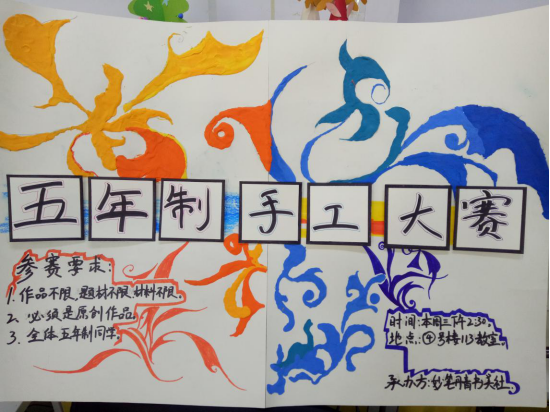 五年制手工大赛
参赛要求:
1. 作品不限,题材不限,材料不限.
2. 必须是原创作品.
3. 全体五年制同学.
时间:本周三下午2:30.
地点:④号楼113教室.
承办方:妙笔丹青书美社.